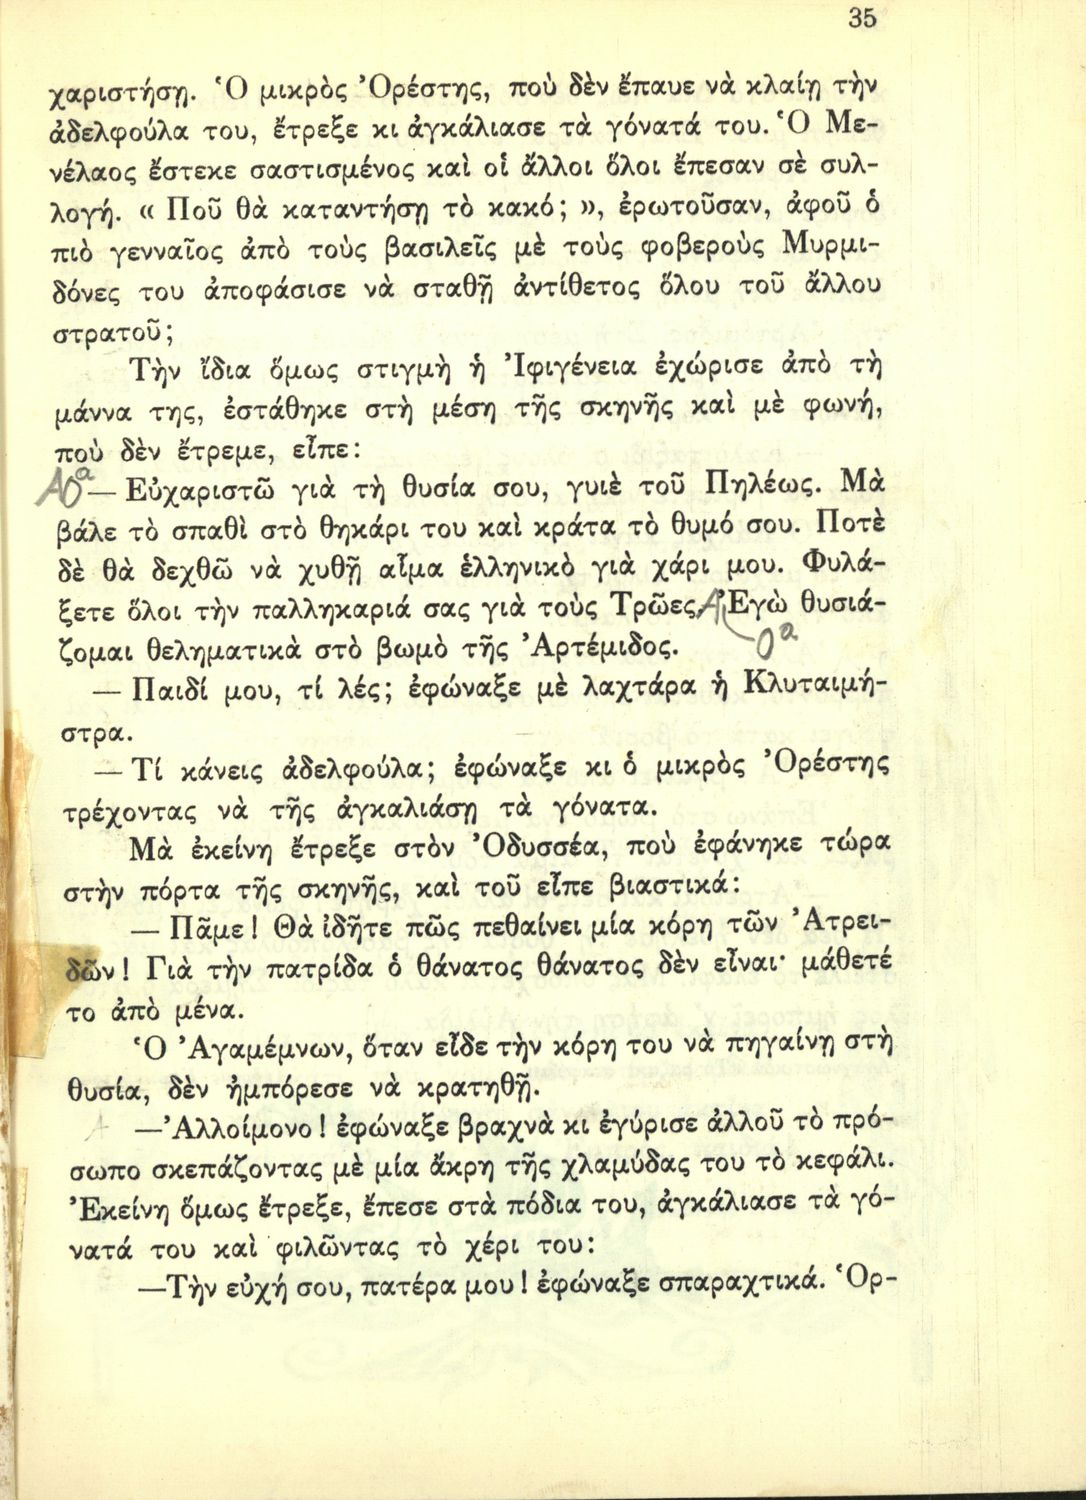 35
χαριστήσῃ. Ὁ μικρὸς Ὀρέστης, ποὺ δὲν ἔπαυε νὰ κλαίῃ τὴν
ἀδελφούλα του, ἔτρεξε κι ἀγκάλιασε τὰ γόνατά του. Ὁ Με-
νέλαος ἔστεκε σαστισμένος καὶ οἱ ἄλλοι ὅλοι ἔπεσαν σὲ συλ-
λογή. « Ποῦ θὰ καταντήσῃ τὸ κακό; », ἐρωτοῦσαν, ἀφοῦ ὁ
πιὸ γενναῖος ἀπὸ τοὺς βασιλεῖς μὲ τοὺς φοβεροὺς Μυρμι-
δόνες του ἀποφάσισε νὰ σταθῇ ἀντίθετος ὅλου τοῦ ἄλλου
στρατοῦ;
Τὴν ἴδια ὅμως στιγμὴ ἡ Ἰφιγένεια ἐχώρισε ἀπὸ τὴ
μάννα της, ἐστάθηκε στὴ μέση τῆς σκηνῆς καὶ μὲ φωνή,
ποὺ δὲν ἔτρεμε, εἶπε:
— Εὐχαριστῶ γιὰ τὴ θυσία σου, γυιὲ τοῦ Πηλέως. Μὰ
βάλε τὸ σπαθὶ στὸ θηκάρι του καὶ κράτα τὸ θυμό σου. Ποτὲ
δὲ θὰ δεχθῶ νὰ χυθῇ αἷμα ἑλληνικὸ γιὰ χάρι μου. Φυλά-
ξετε ὅλοι τὴν παλληκαριά σας γιὰ τοὺς Τρῶες. Ἐγὼ θυσιά-
ζομαι θεληματικὰ στὸ βωμὸ τῆς Ἀρτέμιδος.
— Παιδί μου, τί λές; ἐφώναξε μὲ λαχτάρα ἡ Κλυταιμή-
στρα.
— Τί κάνεις ἀδελφούλα; ἐφώναξε κι ὁ μικρὸς Ὀρέστης
τρέχοντας νὰ τῆς ἀγκαλιάσῃ τὰ γόνατα.
Μὰ ἐκείνη ἔτρεξε στὸν Ὀδυσσέα, ποὺ ἐφάνηκε τώρα
στὴν πόρτα τῆς σκηνῆς, καὶ τοῦ εἶπε βιαστικά:
— Πᾶμε! Θὰ ἰδῆτε πῶς πεθαίνει μία κόρη τῶν Ἀτρει-
δῶν! Γιὰ τὴν πατρίδα ὁ θάνατος θάνατος δὲν εἶναι· μάθετέ
το ἀπὸ μένα.
Ὁ Ἀγαμέμνων, ὅταν εἶδε τὴν κόρη του νὰ πηγαίνῃ στὴ
θυσία, δὲν ἠμπόρεσε νὰ κρατηθῇ.
—Ἀλλοίμονο! ἐφώναξε βραχνὰ κι ἐγύρισε ἀλλοῦ τὸ πρό-
σωπο σκεπάζοντας μὲ μία ἄκρη τῆς χλαμύδας του τὸ κεφάλι.
Ἐκείνη ὅμως ἔτρεξε, ἔπεσε στὰ πόδια του, ἀγκάλιασε τὰ γό-
νατά του καὶ φιλῶντας τὸ χέρι του:
—Τὴν εὐχή σου, πατέρα μου! ἐφώναξε σπαραχτικά. Ὁρ-